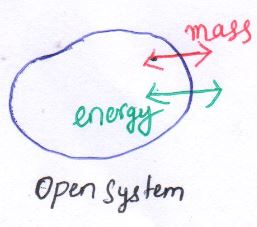 mass
energy
Open System